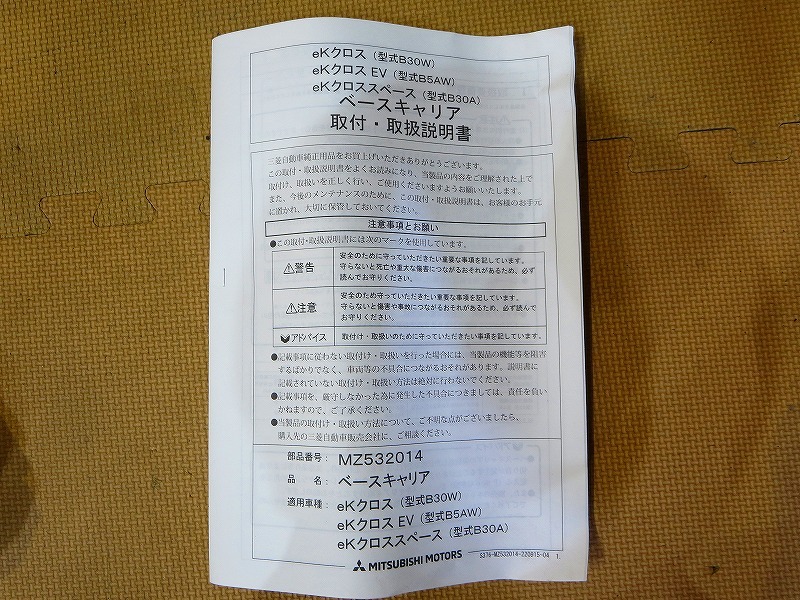 eKクロス（型式B30W）
eKクロス EV（型式B5AW）
eKクロススペース（型式B30A）
ベースキャリア
取付・取扱説明書
三菱自動車純正用品をお買上げいただきありがとうございます。
この取付・取扱説明書をよくお読みになり、当製品の内容をご理解された上で
取付け、取扱いを正しく行い、ご使用くださいますようお願いいたします。
また、今後のメンテナンスのために、この取付・取扱説明書は、お客様のお手元
に置かれ、大切に保管しておいてください。
注意事項とお願い
●この取付・取扱説明書には次のマークを使用しています。
⚠警告
安全のために守っていただきたい重要な事項を記しています。
守らないと死亡や重大な傷害につながるおそれがあるため、必ず
読んでお守りください。
⚠注意
安全のため守っていただきたい重要な事項を記しています。
守らないと傷害や事故につながるおそれがあるため、必ず読んで
お守りください。
アドバイス
取付け・取扱いのために守っていただきたい事項を記しています。
●記載事項に従わない取付け・取扱いを行った場合には、当製品の機能等を阻害
するばかりでなく、車両等の不具合につながるおそれがあります。説明書に
記載されていない取付け・取扱い方法は絶対に行わないでください。
●記載事項を、厳守しなかった為に発生した不具合につきましては、責任を負い
かねますので、ご了承ください。
●当製品の取付け・取扱い方法について、ご不明な点がございましたら、
購入先の三菱自動車販売会社に、ご相談ください。
部品番号： MZ532014
品 名： ベースキャリア
適用車種： eKクロス（型式B30W）
eKクロス EV（型式B5AW）
eKクロススペース（型式B30A）
MITSUBISHI MOTORS
S376-MZ532014-220815-04 1